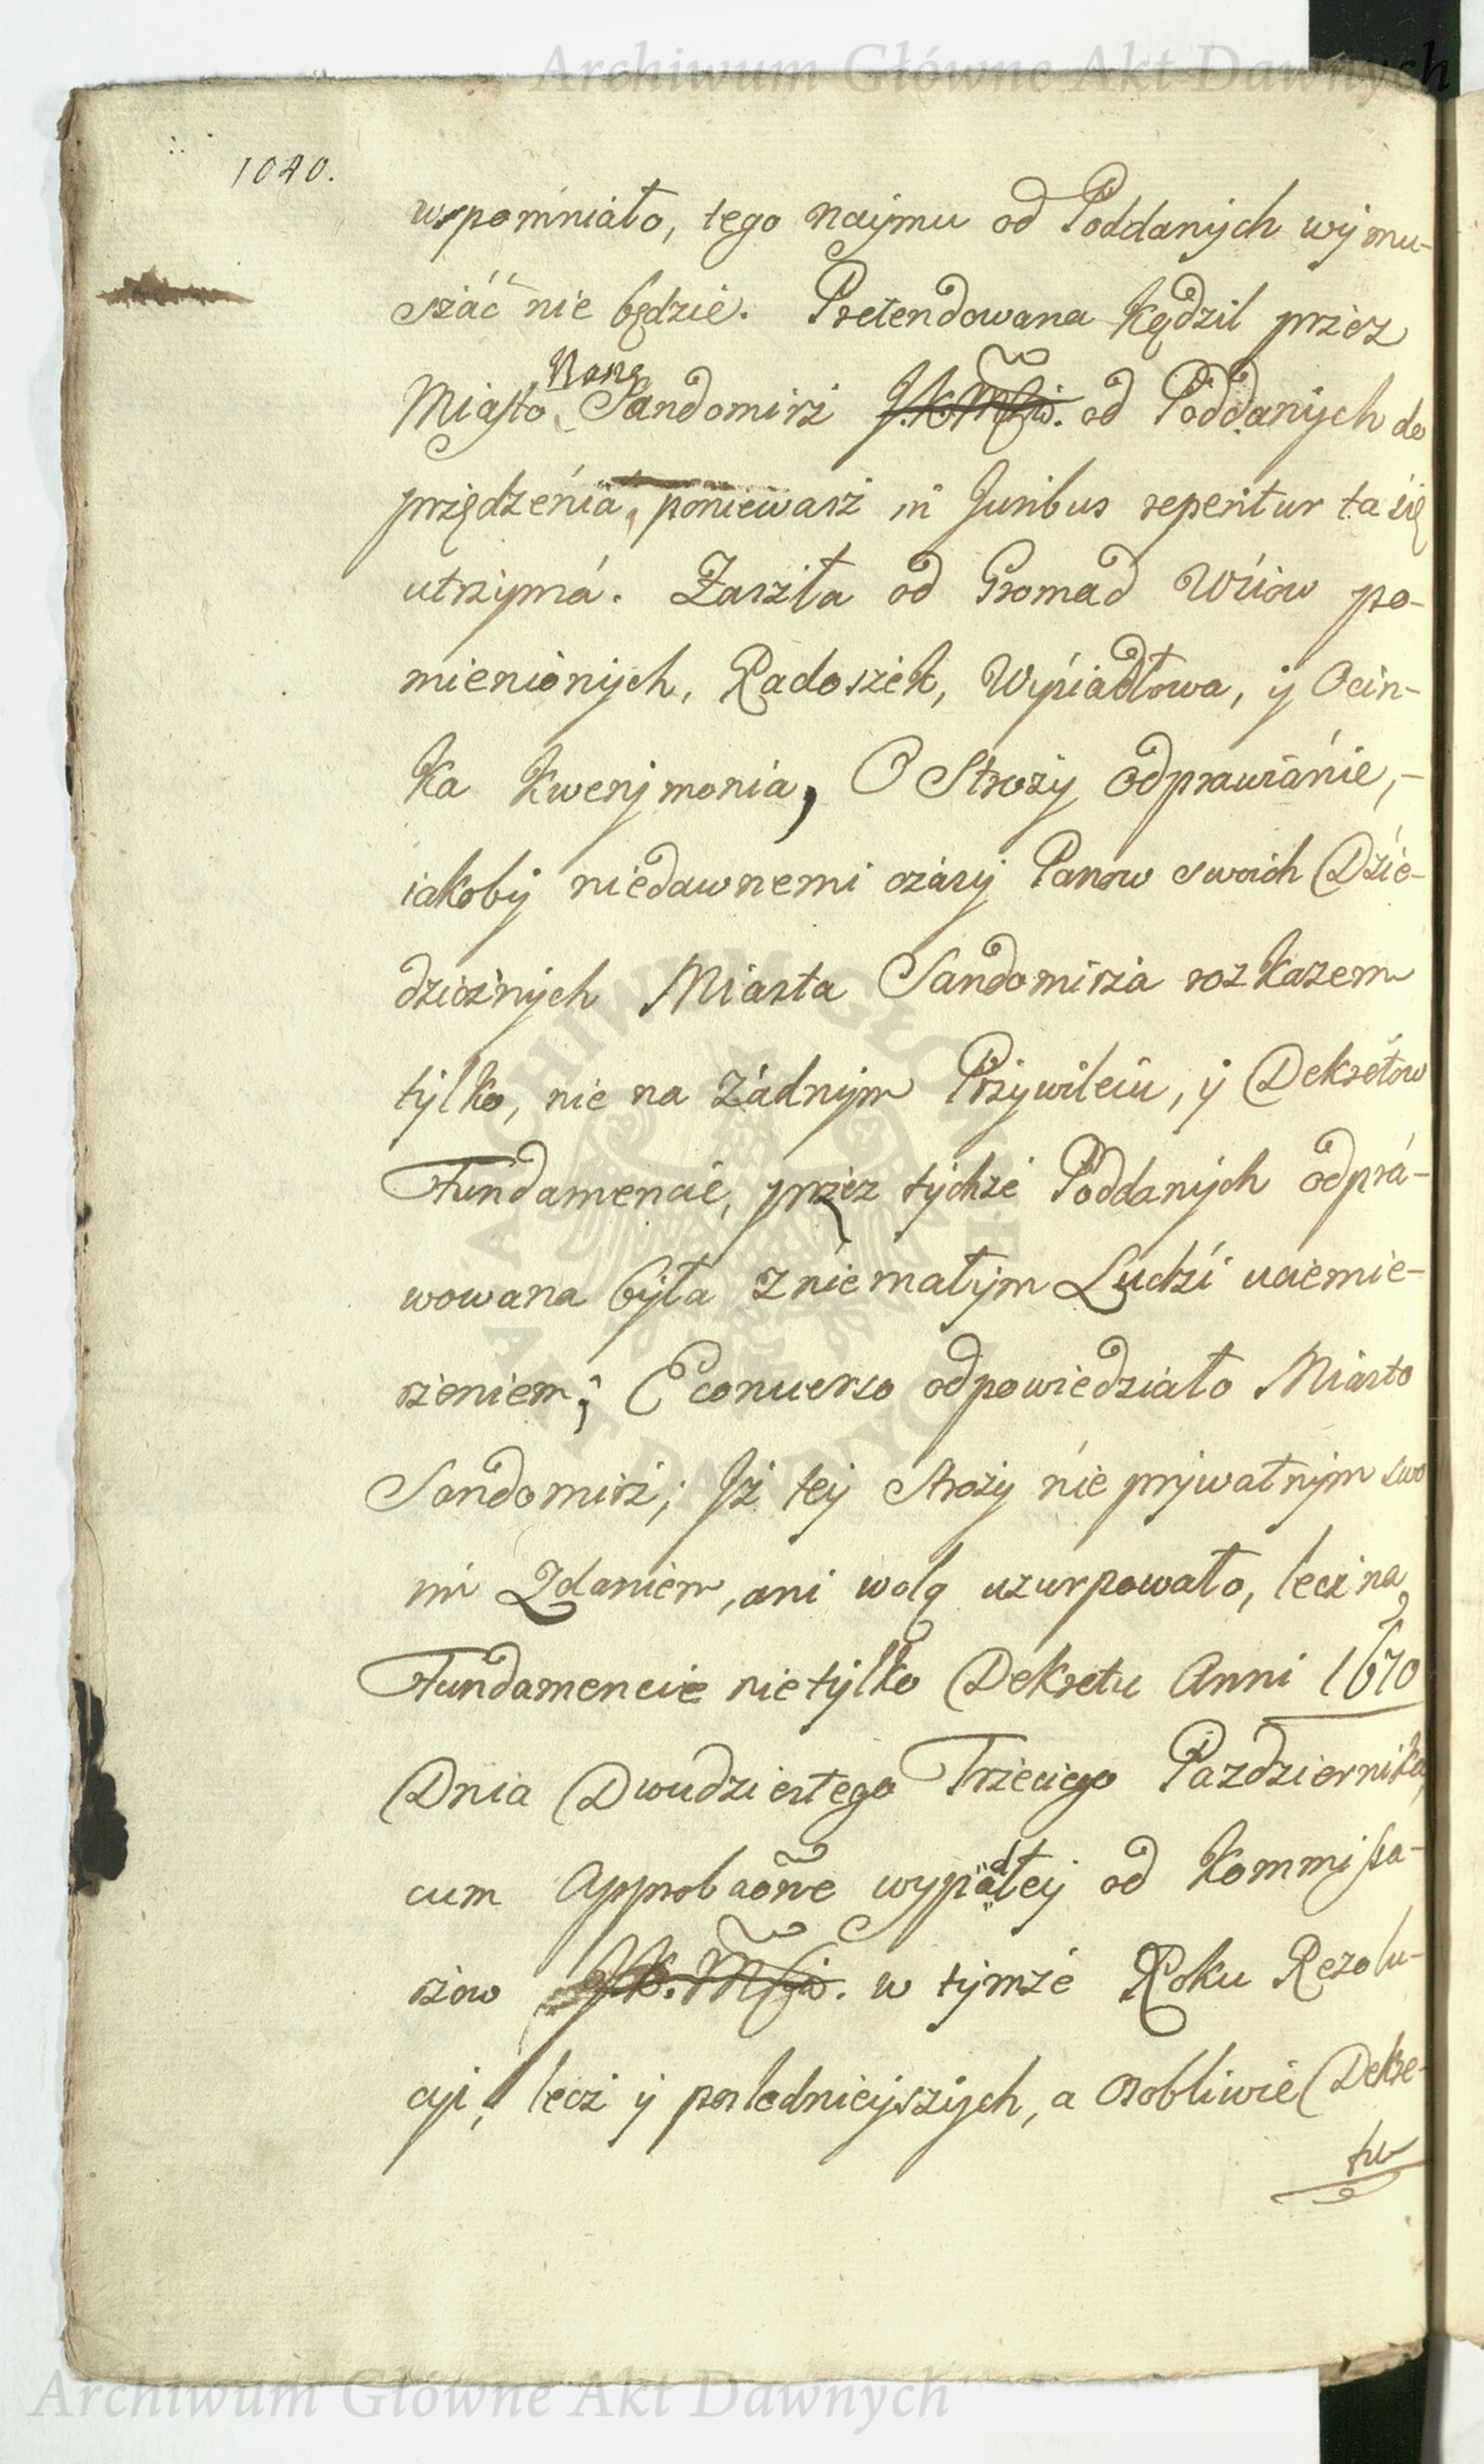 Archiwum Główne Akt Dawnych
1040.
wspomniało, tego naijmu od Poddanijch wijmu-
száć nie będzie. Pretendowana Kądzil przez
Nasze
Miasto Sandomirz J.K.Mści. od Poddanijch do
przędzenia, poniewasz in Juribus reperitur ta się
utrzijmá. Zaszła od Gromad Wsiow po-
mienionijch, Radoszek, Wysiadłowa, ij Ocin-
ka Kwerijmonia, O Strozij odprawianie,-
iakobij niedawnemi czásij Panow swoich Dzie-
dzicznijch Miasta Sandomirza rozkazem
tijlko, nie na Zádnijm Przijwileiu, ij Dekretow
Fundamencie, przez tijchze Poddanijch odprá-
wowana bijła z niemałijm Ludzi uciemie-
rzeniem; Econuerso odpowiedziało Miasto
Sandomirz; Jz teij Strozij nie prijwatnijm swo
im Zdaniem, ani wolą uzurpowało, lecz na
Fundamencie nie tijlko Dekretu Anni 1670
Dnia Dwudziestego Trzeciego Pazdziernika,
cum Approbaõne wypadłeij od Kommissa-
rzow J.K.Mści. w tijmze Roku Rezolu-
cyi, lecz ij posledniejszijch, a osobliwie Dekre-
tu
ARCHIWUM GŁÓWNE AKT DAWNYCH
Archiwum Główne Akt Dawnych